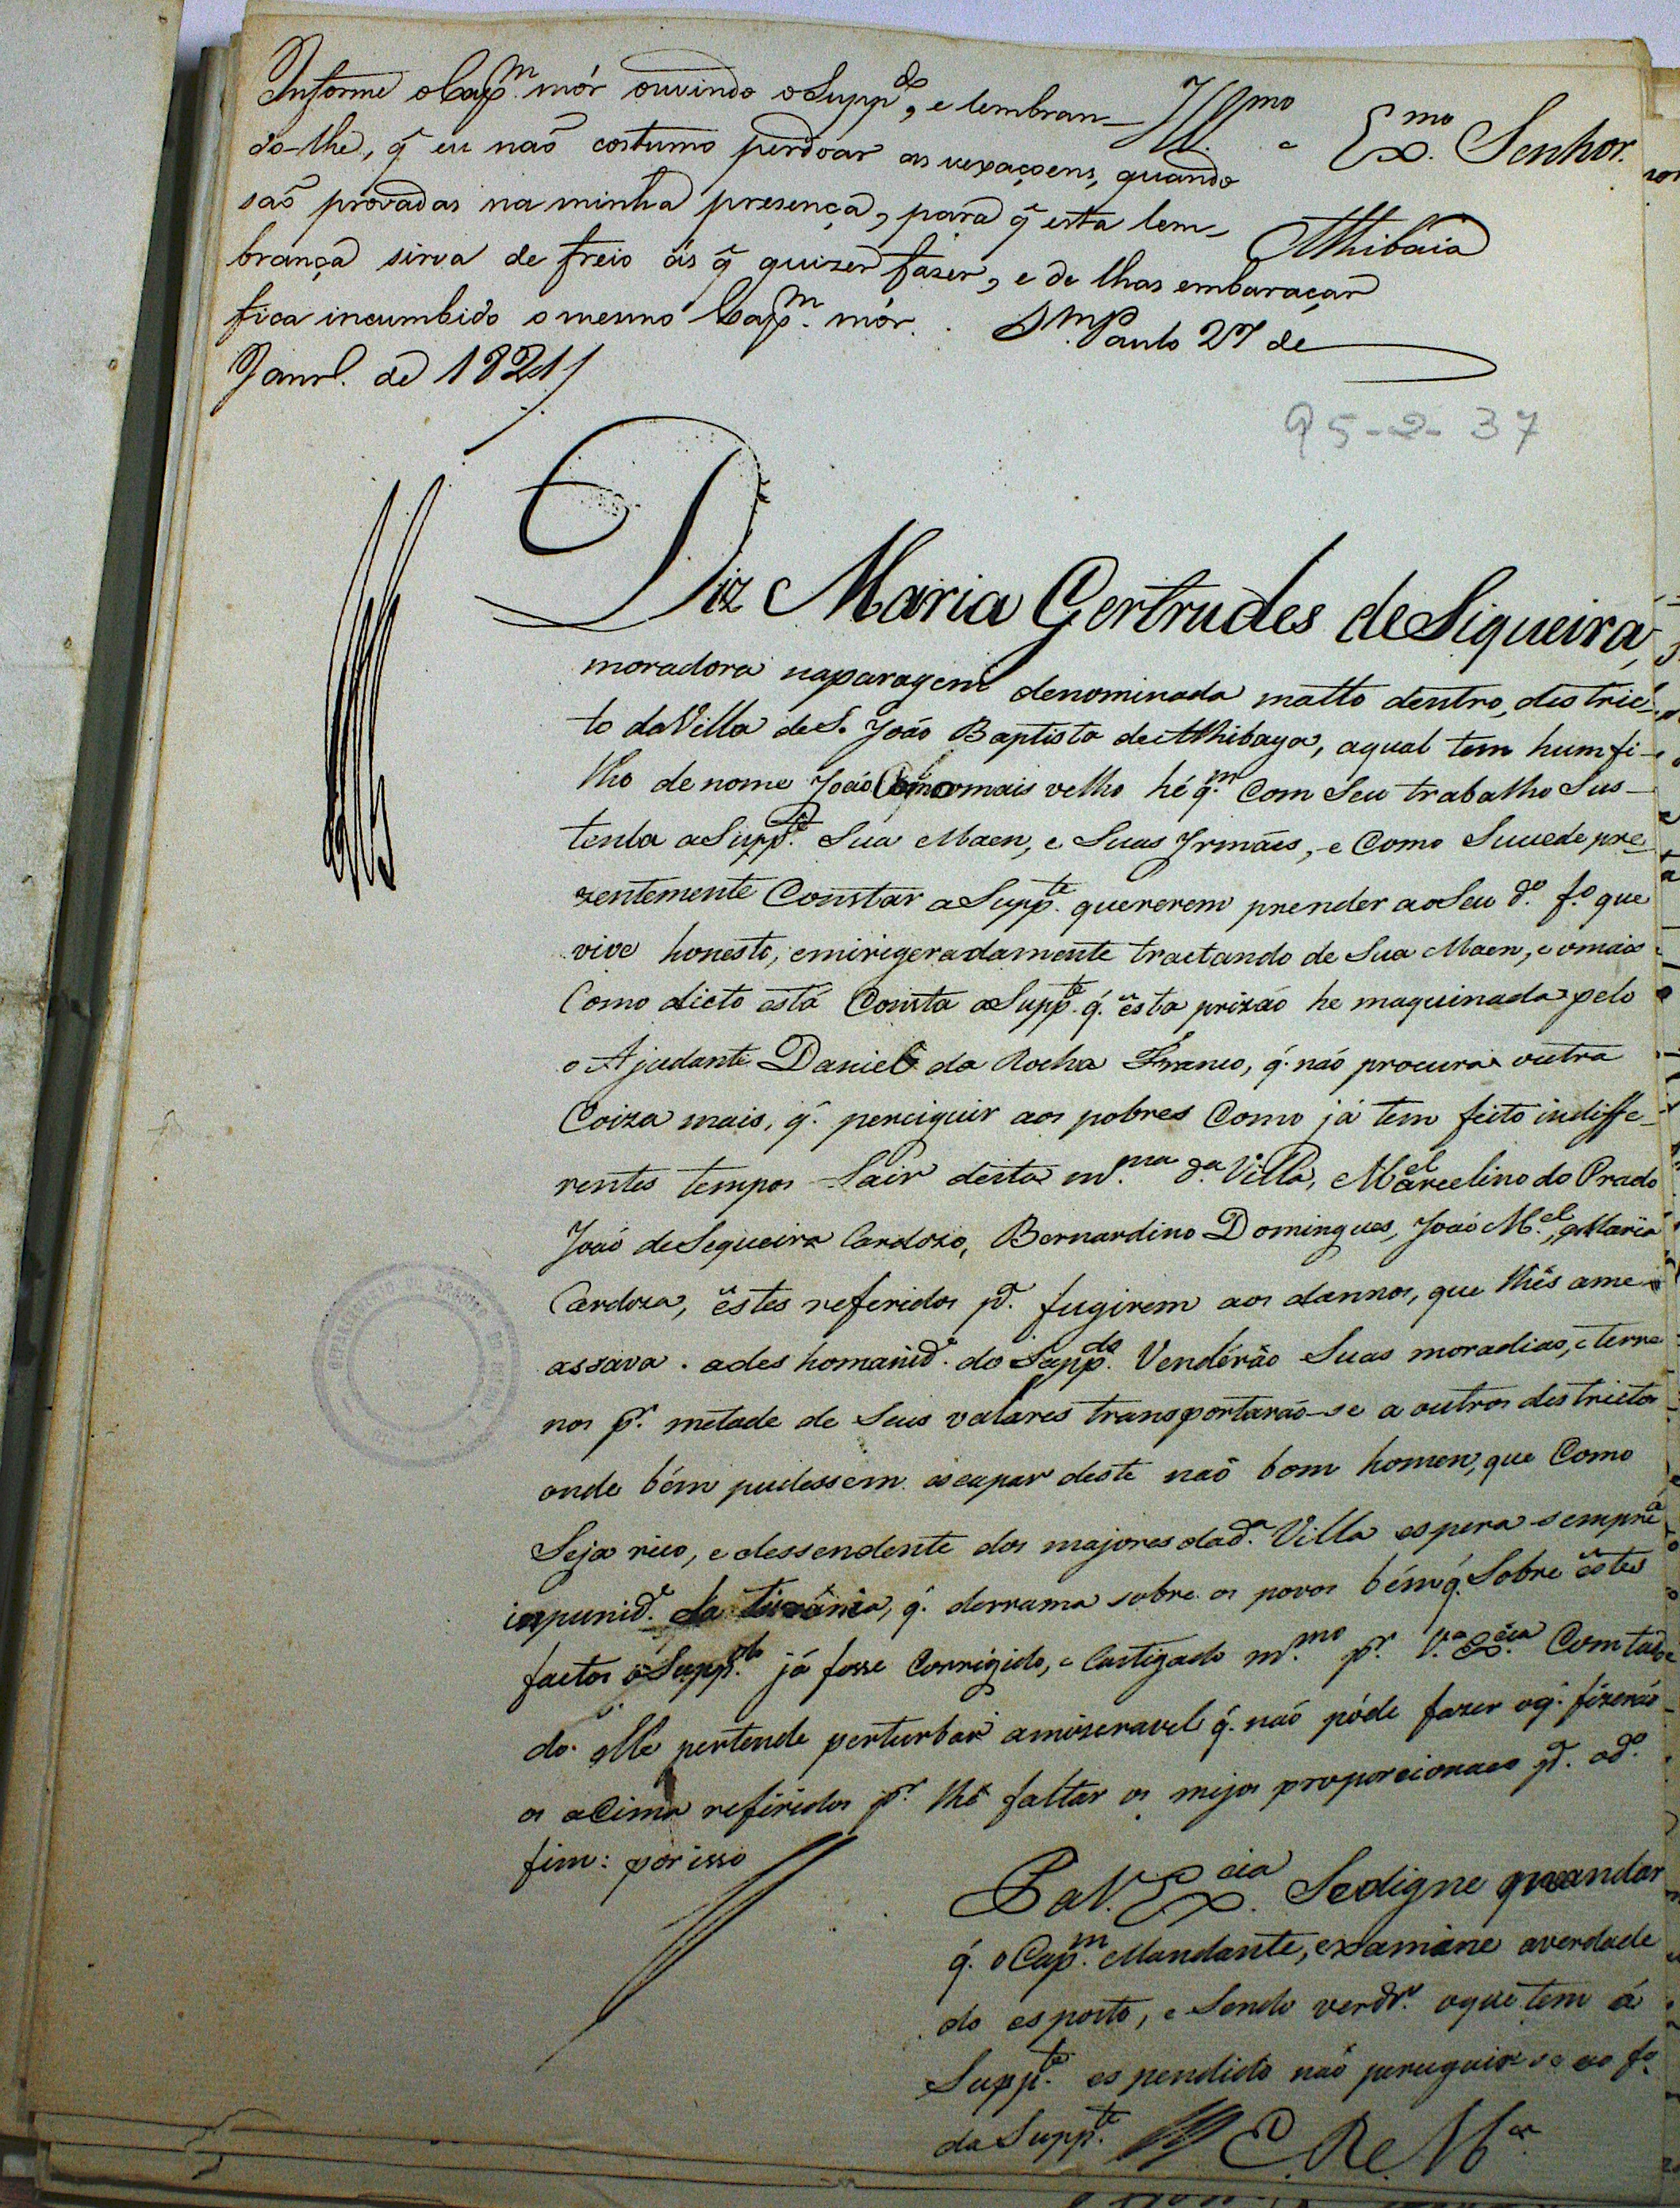 Informe o Cap.m mór ouvindo o Supp.do, e lembran-
do-lhe, q̃ eu naõ costumo perdoar as vexaçoens, quando
saõ provadas na minha presença, para q̃ esta lem-
brança sirva de freio ás q̃ quizer fazer, e de lhas embaraçar
fica incumbido o mesmo Cap.m mór. S.m Paulo 27 de
Janr.o de 1821
Ill.mo e Ex.mo Senhor.
Athibaia
95-2-37
Diz Maria Gertrudes de Siqueira,
moradora naparagem denominada matto dentro, destric-
to da Villa de S. João Baptista de Athibaya, aqual tem hum fi-
lho de nome João omais velho hé q.m Com Seu trabalho Sus-
tenta a Supp.te Sua Maen, e Suas Irmães, e Como Sucede pre-
zentemente Constar a Supp.te quererem prender ao Seu d.o f.o que
vive honesto, emirigeradamente tractando de Sua Maen, e omais
Como dicto está Consta a Supp.te q. ésta prizão he maquinada pelo
o Ajudante Daniel da Rocha Franco, q. não procura outra
Coiza mais, q. perciguir aos pobres Como já tem feito indiffe-
rentes tempos Sair desta m.ma d.a Villa, M.el Marcelino do Prado
João de Sequeira Cardozo, Bernardino Domingues, João M.el, e Maria
Cardoza, éstes referidos p.a fugirem aos dannos, que lhés ame-
assava. a deshomanid.e do Supp.do Vendérão Suas moradias, e terre
nos p.r metade de Seus valares transportarão-se a outros destrictos
onde bém pudessem escapar deste naõ bom homen, que Como
Seja rico, e dessendente dos majores da d.a Villa espera sempre a
inpunid.e da tirânia, q. derrama sobre os povos bémq. Sobre éstes
factos o Supp.do já fosse Corrigido, e Castigado m.mo p.r V.a Ex.cia Comtudo
do elle pertende perturbar amizeravel q. não póde fazer oq. fizerão
os aCima referidos p.r lhé faltar os mejos proporcionaes p.a od.o
fim: por isso
P. a V. Ex.cia Sedigne mandar
q. o Cap.m Mandante, examine averdade
do esposto, e Sendo verdr.o oque tem á
Supp.te espendido não perseguir-se ao f.o
da Supp.te E. R. M.ce